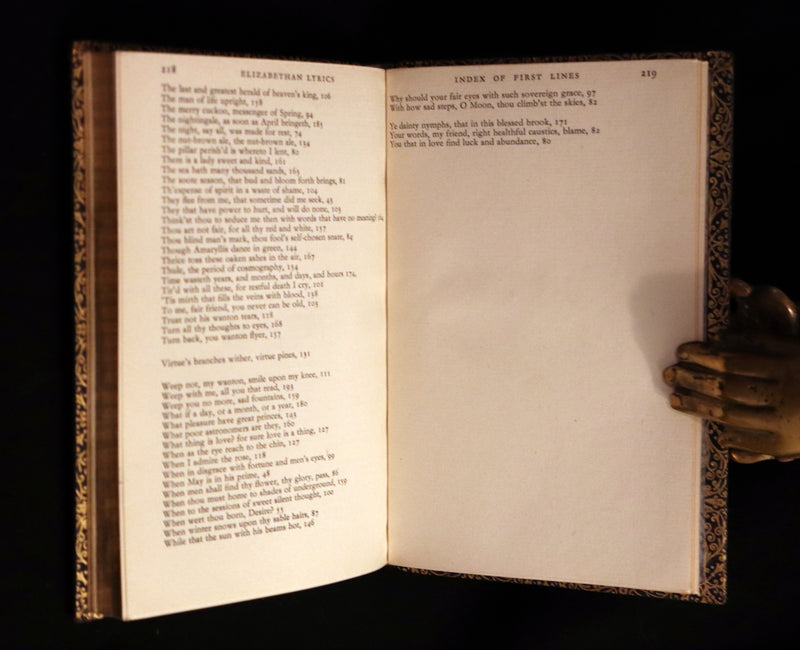 218
ELIZABETHAN LYRICS
The last and greatest herald of heaven's king, 106
The man of life upright, 158
The merry cuckoo, messenger of Spring, 94
The nightingale, as soon as April bringeth, 185
The night, say all, was made for rest, 74
The nut-brown ale, the nut-brown ale, 134
The pillar perish'd is whereto I lent, 80
There is a lady sweet and kind, 161
The sea hath many thousand sands, 165
The soote season, that bud and bloom forth brings, 81
Th'expense of spirit in a waste of shame, 104
They flee from me, that sometime did me seek, 45
They that have power to hurt, and will do none, 103
Think'st thou to seduce me then with words that have no meaning?
Thou art not fair, for all thy red and white, 157
Thou blind man's mark, thou fool's self-chosen snare, 84
Though Amaryllis dance in green, 144
Thrice toss these oaken ashes in the air, 167
Thule, the period of cosmography, 154
Time wasteth years, and months, and days, and hours 174,
Tir'd with all these, for restful death I cry, 101
'Tis mirth that fills the veins with blood, 138
To me, fair friend, you never can be old, 103
Trust not his wanton tears, 118
Turn all thy thoughts to eyes, 168
Turn back, you wanton flyer, 157
Virtue's branches wither, virtue pines, 131
Weep not, my wanton, smile upon my knee, 111
Weep with me, all you that read, 193
Weep you no more, sad fountains, 159
What if a day, or a month, or a year, 180
What pleasure have great princes, 143
What poor astronomers are they, 160
What thing is love? for sure love is a thing, 127
When as the rye reach to the chin, 127
When I admire the rose, 118
When in disgrace with fortune and men's eyes, 99
When May is in his prime, 48
When men shall find thy flower, thy glory, pass, 86
When thou must home to shades of underground, 159
When to the sessions of sweet silent thought, 100
When wert thou born, Desire? 53
When winter snows upon thy sable hairs, 87
While that the sun with his beams hot, 146
INDEX OF FIRST LINES
219
Why should your fair eyes with such sovereign grace, 97
With how sad steps, O Moon, thou climb'st the skies, 82
Ye dainty nymphs, that in this blessed brook, 171
Your words, my friend, right healthful caustics, blame, 82
You that in love find luck and abundance, 80